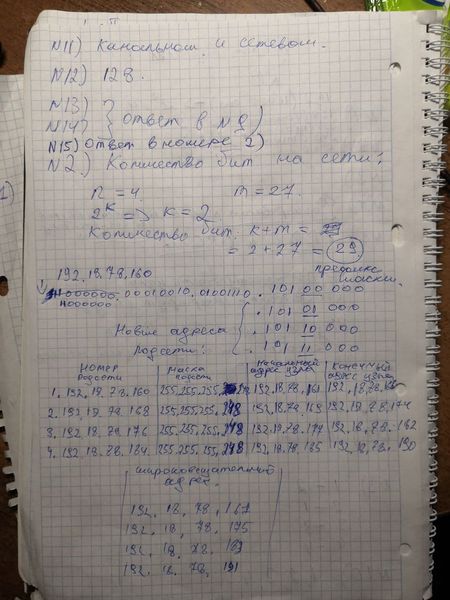 N11) Канальном и сетевом.
N12) 128.
N13)
N14) } ответ в N9)
N15) Ответ в номере 2)
N2.) Количество бит на сети:
n = 4 m = 27.
2^k => k = 2
Количество бит: k+m =
= 2+27 = 29
префикс маски.
192.18.78.160
.00010010.0100110 .101 00 000
11000000. .101 01 000
Новые адреса .101 10 000
подсети: .101 11 000
номер подсети | маска подсети | Начальный адрес узла | Конечный адрес узла
1. 192.18.78.160 | 255.255.255.248 | 192.18.78.161 | 192.18.78.166
2. 192.18.78.168 | 255.255.255.248 | 192.18.78.169 | 192.18.78.174
3. 192.18.78.176 | 255.255.255.248 | 192.18.78.177 | 192.18.78.182
4. 192.18.78.184 | 255.255.255.248 | 192.18.78.185 | 192.18.78.190
широковещательный адрес.
192.18.78.167
192.18.78.175
192.18.78.183
192.18.78.191